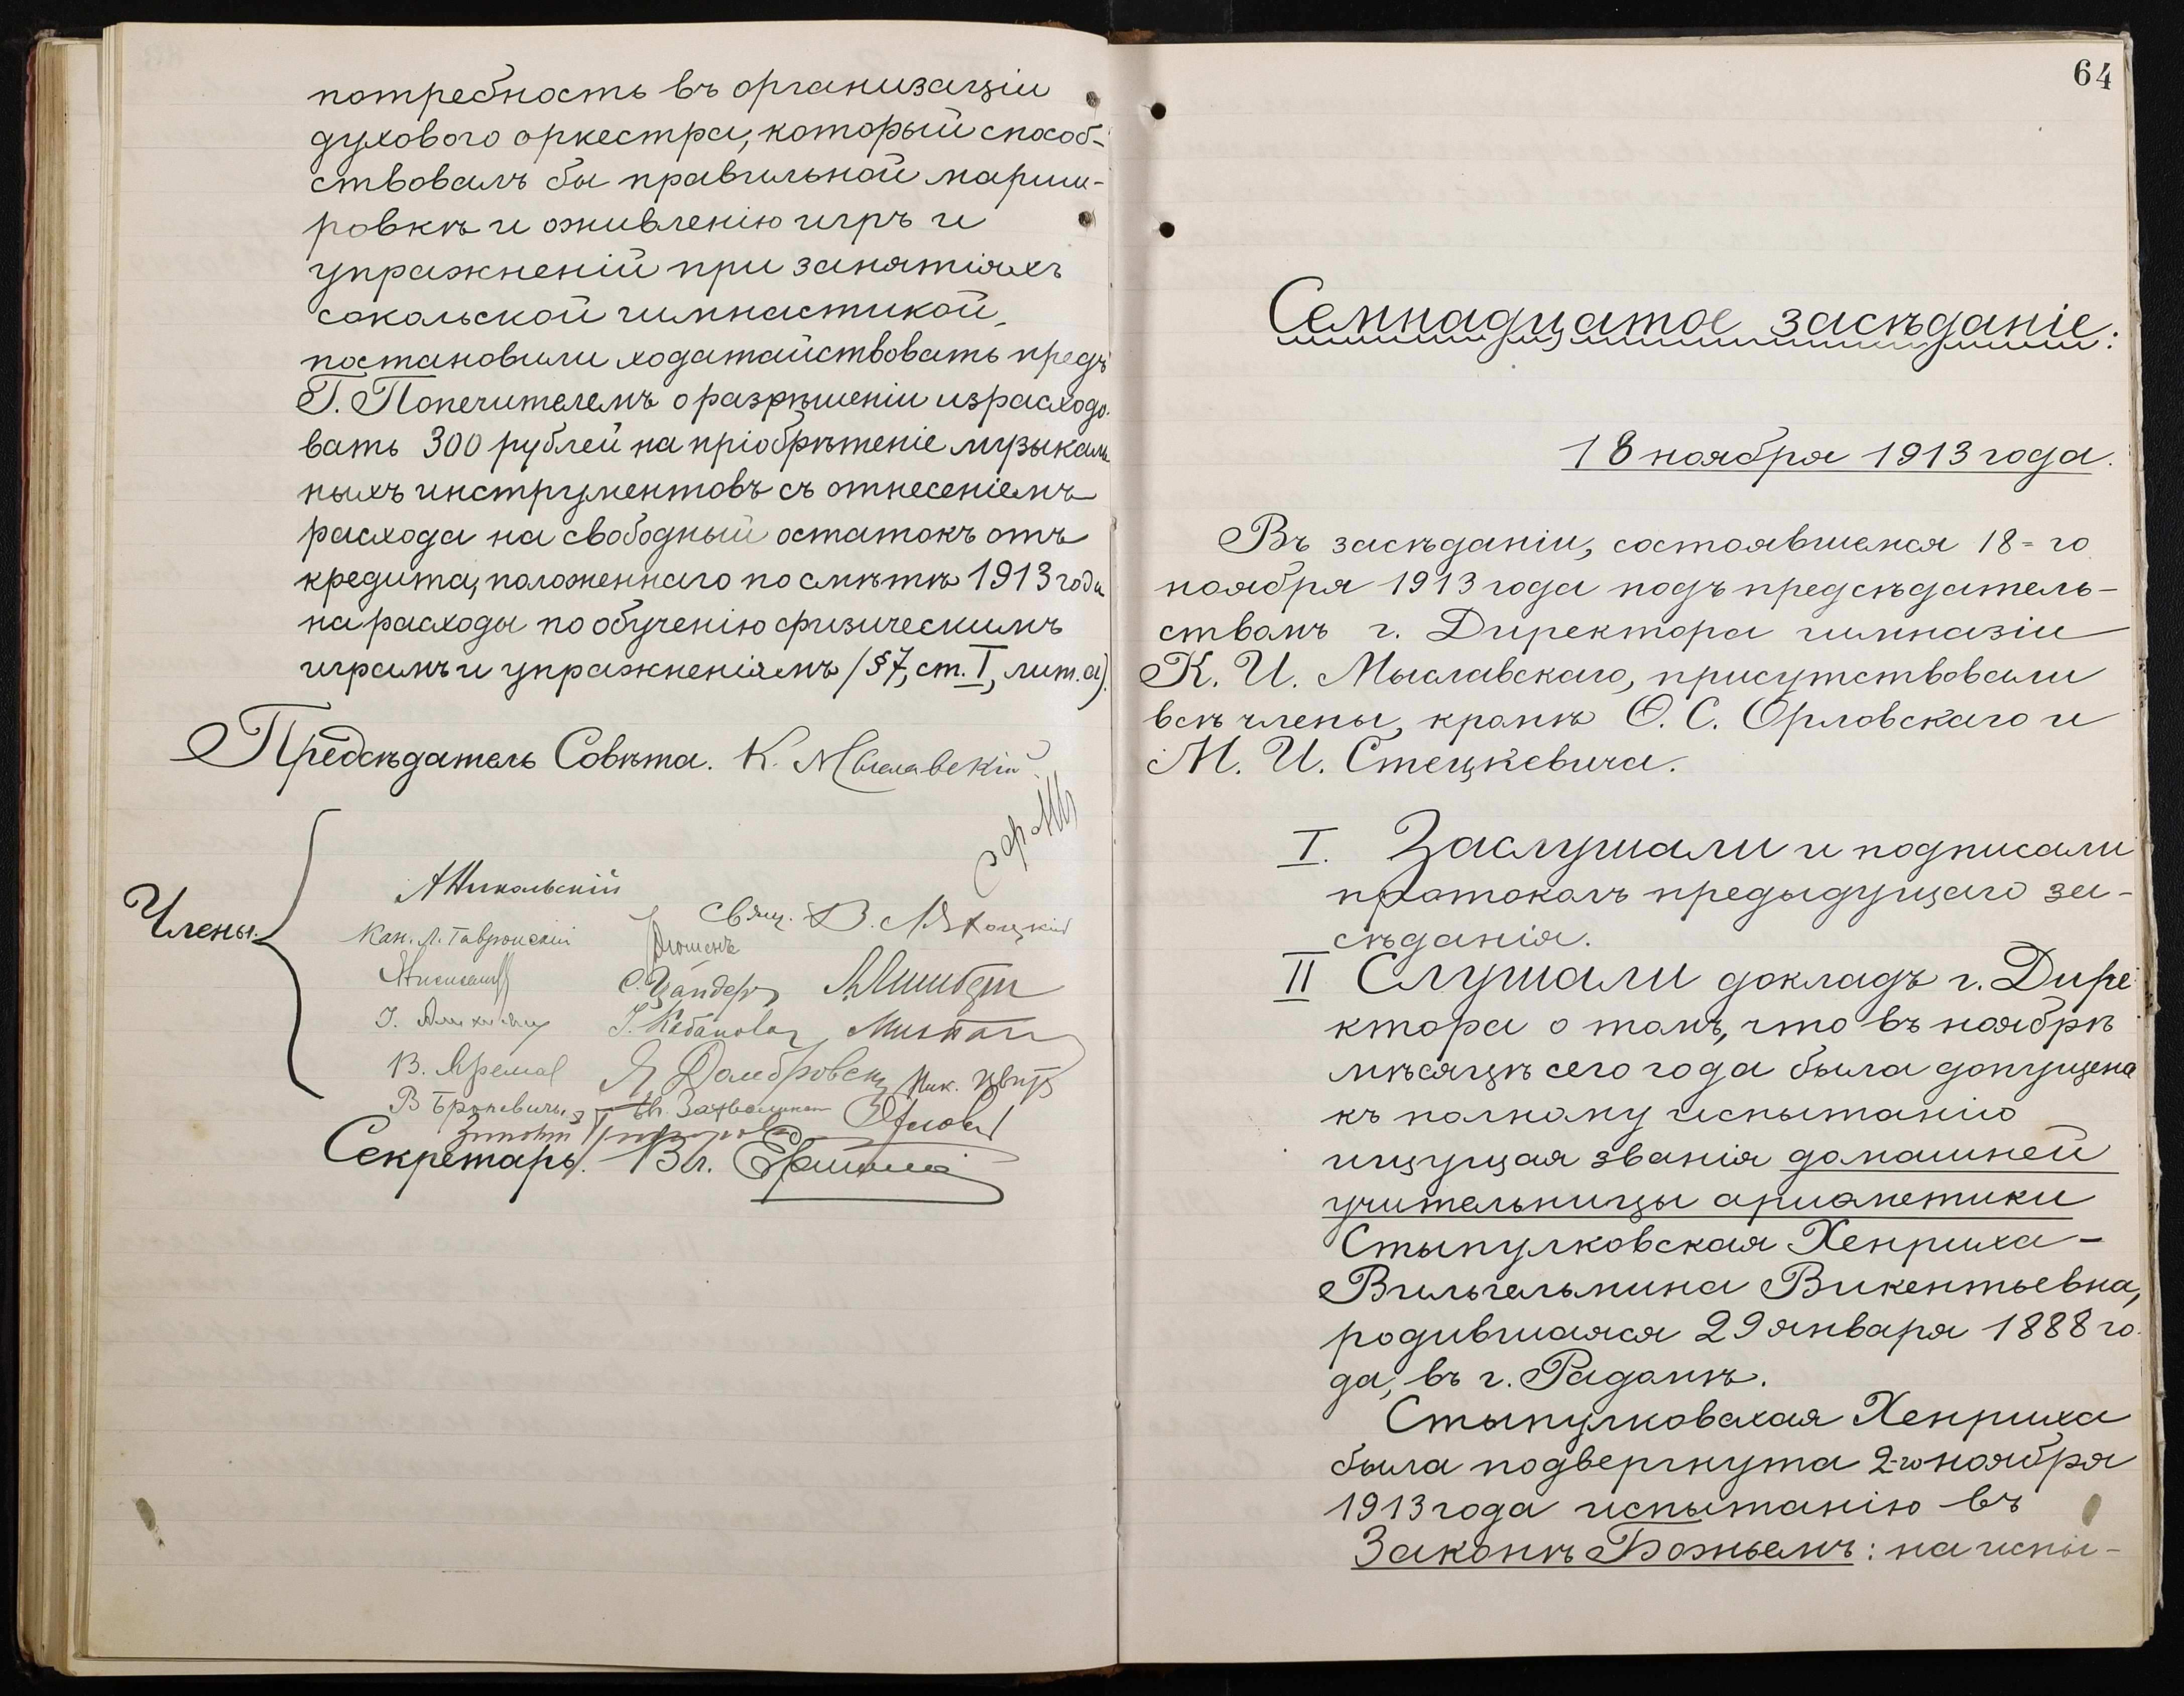 потребность въ организаціи
духового оркестра, который способ-
ствовалъ бы правильной марши-
ровкѣ и оживленію игръ и
упражненій при занятіяхъ
сокольской гимнастикой,
постановили ходатайствовать предъ
Г. Попечителемъ о разрѣшеніи израсходо-
вать 300 рублей на пріобрѣтеніе музыкаль
ныхъ инструментовъ съ отнесеніемъ
расхода на свободный остатокъ отъ
кредита, положеннаго по смѣтѣ 1913 года
на расходы по обученію физическимъ
играмъ и упражненіямъ (§7, ст. I, лит. а).
Предсѣдатель Совѣта. К. Мыславскій
Члены.
А Никольскій
Свящ. В.
Кан. Л. Гавронскій
С. Цандеръ
В. Яремов
Я Домбровскій
Ник.
В Броневичъ
Секретарь. Вл.
64
Семнадцатое засѣданіе:
18 ноября 1913 года.
Въ засѣданіи, состоявшемся 18=го
ноября 1913 года подъ предсѣдатель-
ствомъ г. Директора гимназіи
К. И. Мыславскаго, присутствовали
всѣ члены, кромѣ Ѳ. С. Орловскаго и
М. И. Стецкевича.
I. Заслушали и подписали
протоколъ предыдущаго за-
сѣданія.
II Слушали докладъ г. Дире-
ктора о томъ, что въ ноябрѣ
мѣсяцѣ сего года была допущена
къ полному испытанію
ищущая званія домашней
учительницы ариѳметики
Стыпулковская Хенриха-
Вильгельмина Викентьевна,
родившаяся 29 января 1888 го-
да, въ г. Радомѣ.
Стыпулковская Хенриха
была подвергнута 2-го ноября
1913 года испытанію въ
Законѣ Божьемъ: на испы-